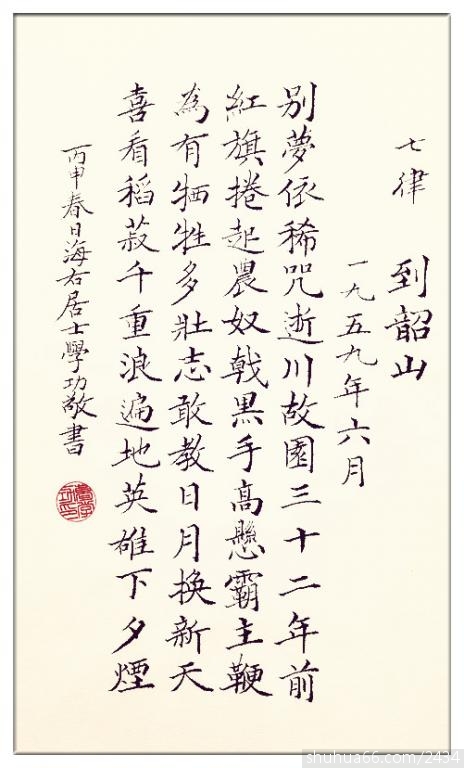 七律
到韶山
一九五九年六月
别夢依稀咒逝川故園三十二年前
紅旗捲起農奴戟黑手高懸霸主鞭
為有牺牲多壯志敢教日月換新天
喜看稻菽千重浪遍地英雄下夕煙
丙申春日海右居士學功敬書
shuhua66.com/2434